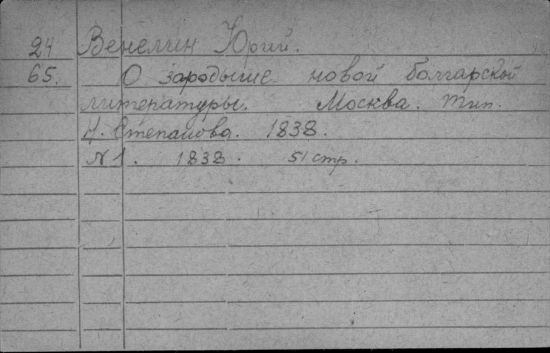 24 Венелин Юрий.
65. О зародыше новой болгарской
литературы. Москва. Тип.
Н. Степанова. 1838.
N 1. 1838. 51 стр.